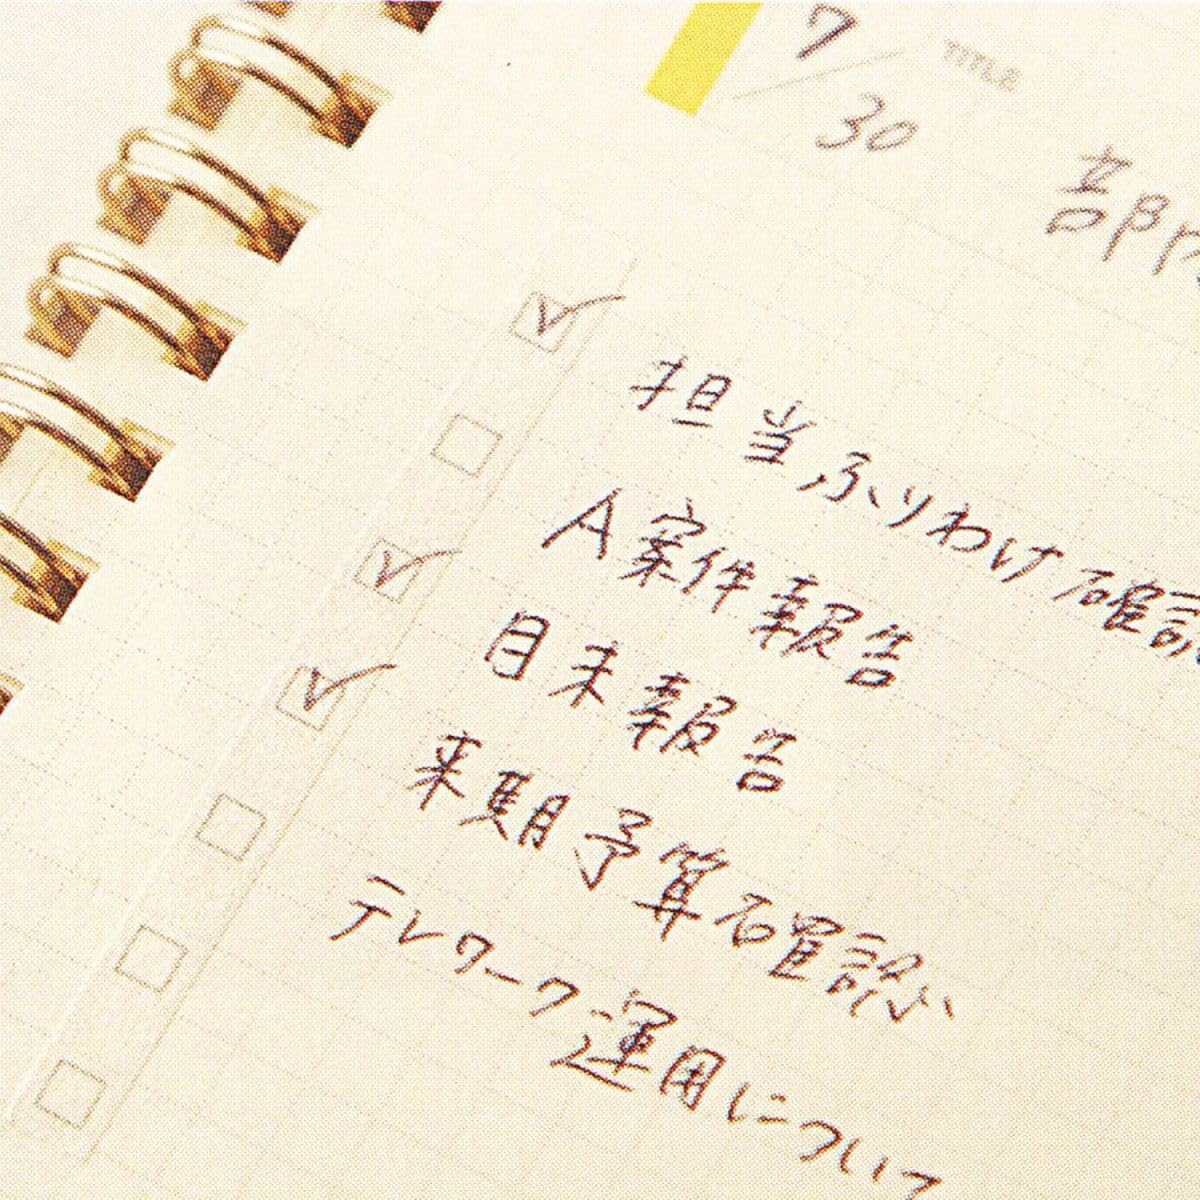 7/30
TITLE
部門
担当ふりわけ確認
A案件報告
目来報告
来期予算確認
テレワーク運用について